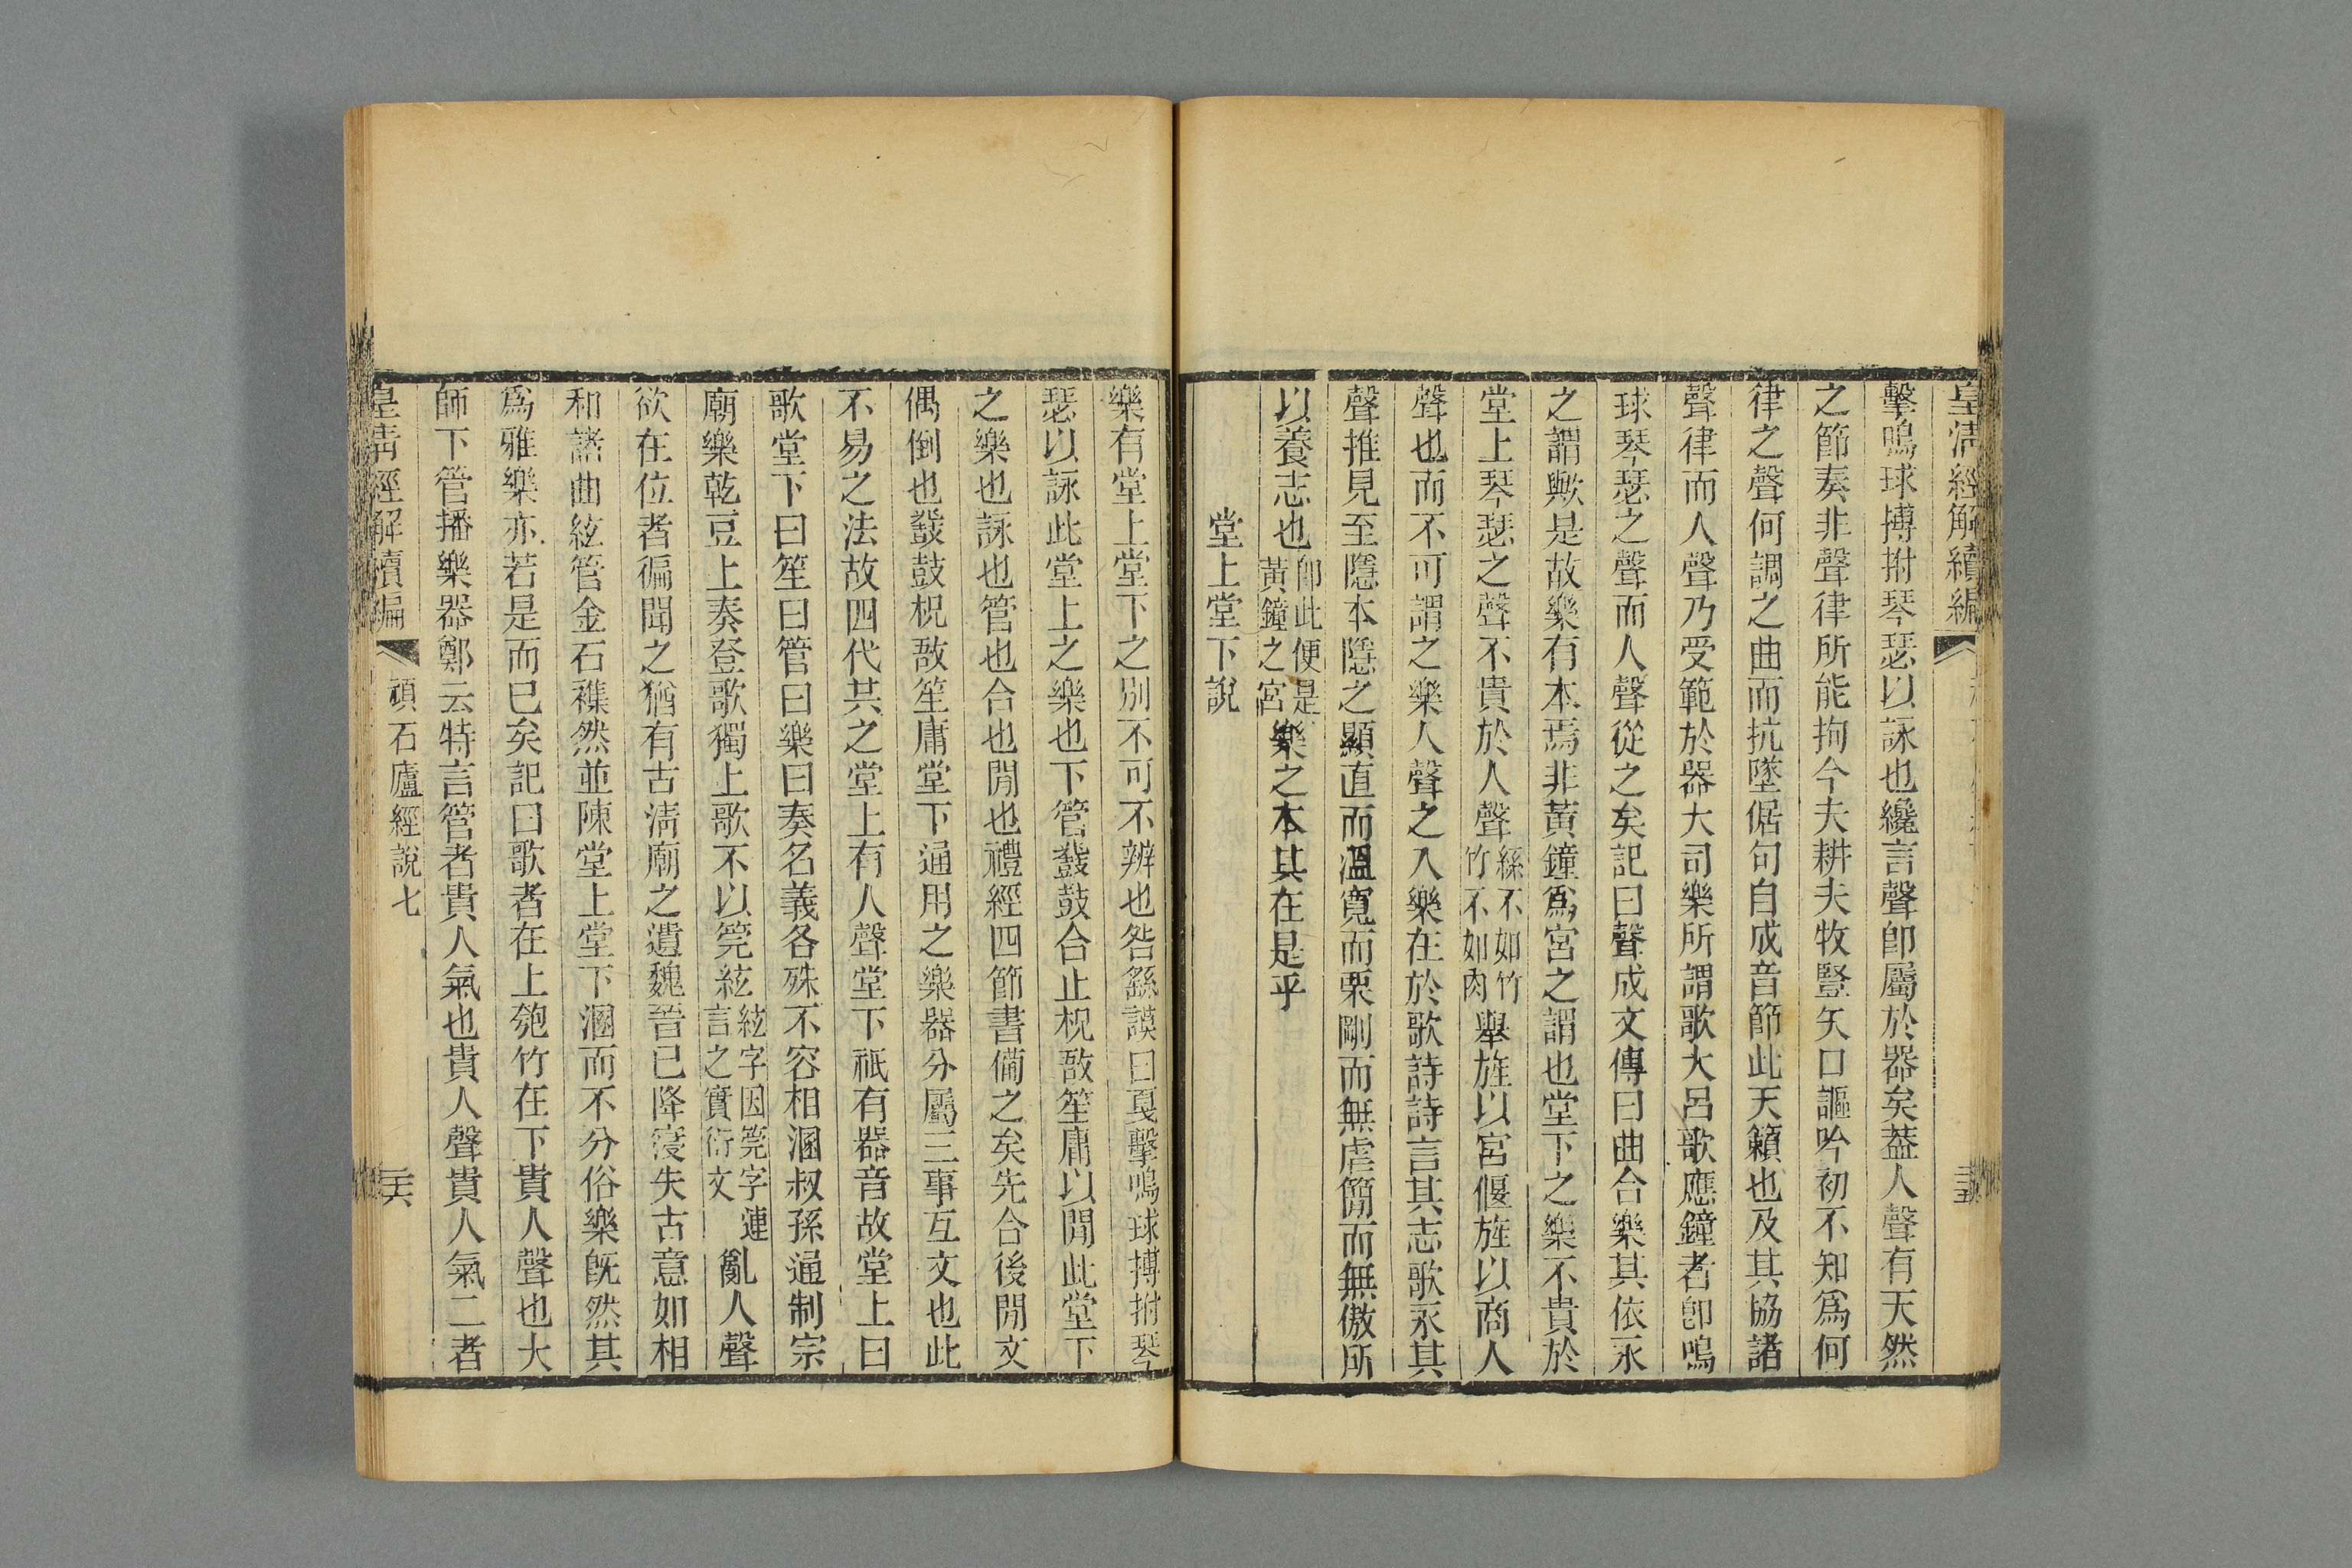 皇清經解續編
擊鳴球搏拊琴瑟以詠也纔言聲卽屬於器矣葢人聲有天然
之節奏非聲律所能拘今夫耕夫牧豎矢口謳吟初不知爲何
律之聲何調之曲而抗墜倨句自成音節此天籟也及其協諸
聲律而人聲乃受範於器大司樂所謂歌大呂歌應鐘者卽鳴
球琴瑟之聲而人聲從之矣記曰聲成文傳曰曲合樂其依永
之謂歟是故樂有本焉非黃鐘爲宮之謂也堂下之樂不貴於
堂上琴瑟之聲不貴於人聲絲不如竹竹不如肉舉旌以宮偃旌以商人
聲也而不可謂之樂人聲之入樂在於歌詩詩言其志歌永其
聲推見至隱本隱之顯直而溫寬而栗剛而無虐簡而無傲所
以養志也卽此便是黃鐘之宮樂之本其在是乎
堂上堂下說
樂有堂上堂下之別不可不辨也咎繇謨曰戛擊鳴球搏拊琴
瑟以詠此堂上之樂也下管鼗鼓合止柷敔笙庸以閒此堂下
之樂也詠也管也合也閒也禮經四節書備之矣先合後閒文
偶倒也鼗鼓柷敔笙庸堂下通用之樂器分屬三事互文也此
不易之法故四代共之堂上有人聲堂下祇有器音故堂上曰
歌堂下曰笙曰管曰樂曰奏名義各殊不容相溷叔孫通制宗
廟樂乾豆上奏登歌獨上歌不以筦絃絃字因筦字連言之實衍文亂人聲
欲在位者徧聞之猶有古淸廟之遺魏晉已降寖失古意如相
和諸曲絃管金石襍然並陳堂上堂下溷而不分俗樂旣然其
爲雅樂亦若是而已矣記曰歌者在上匏竹在下貴人聲也大
師下管播樂器鄭云特言管者貴人氣也貴人聲貴人氣二者
皇清經解續編
頑石廬經說七
二六